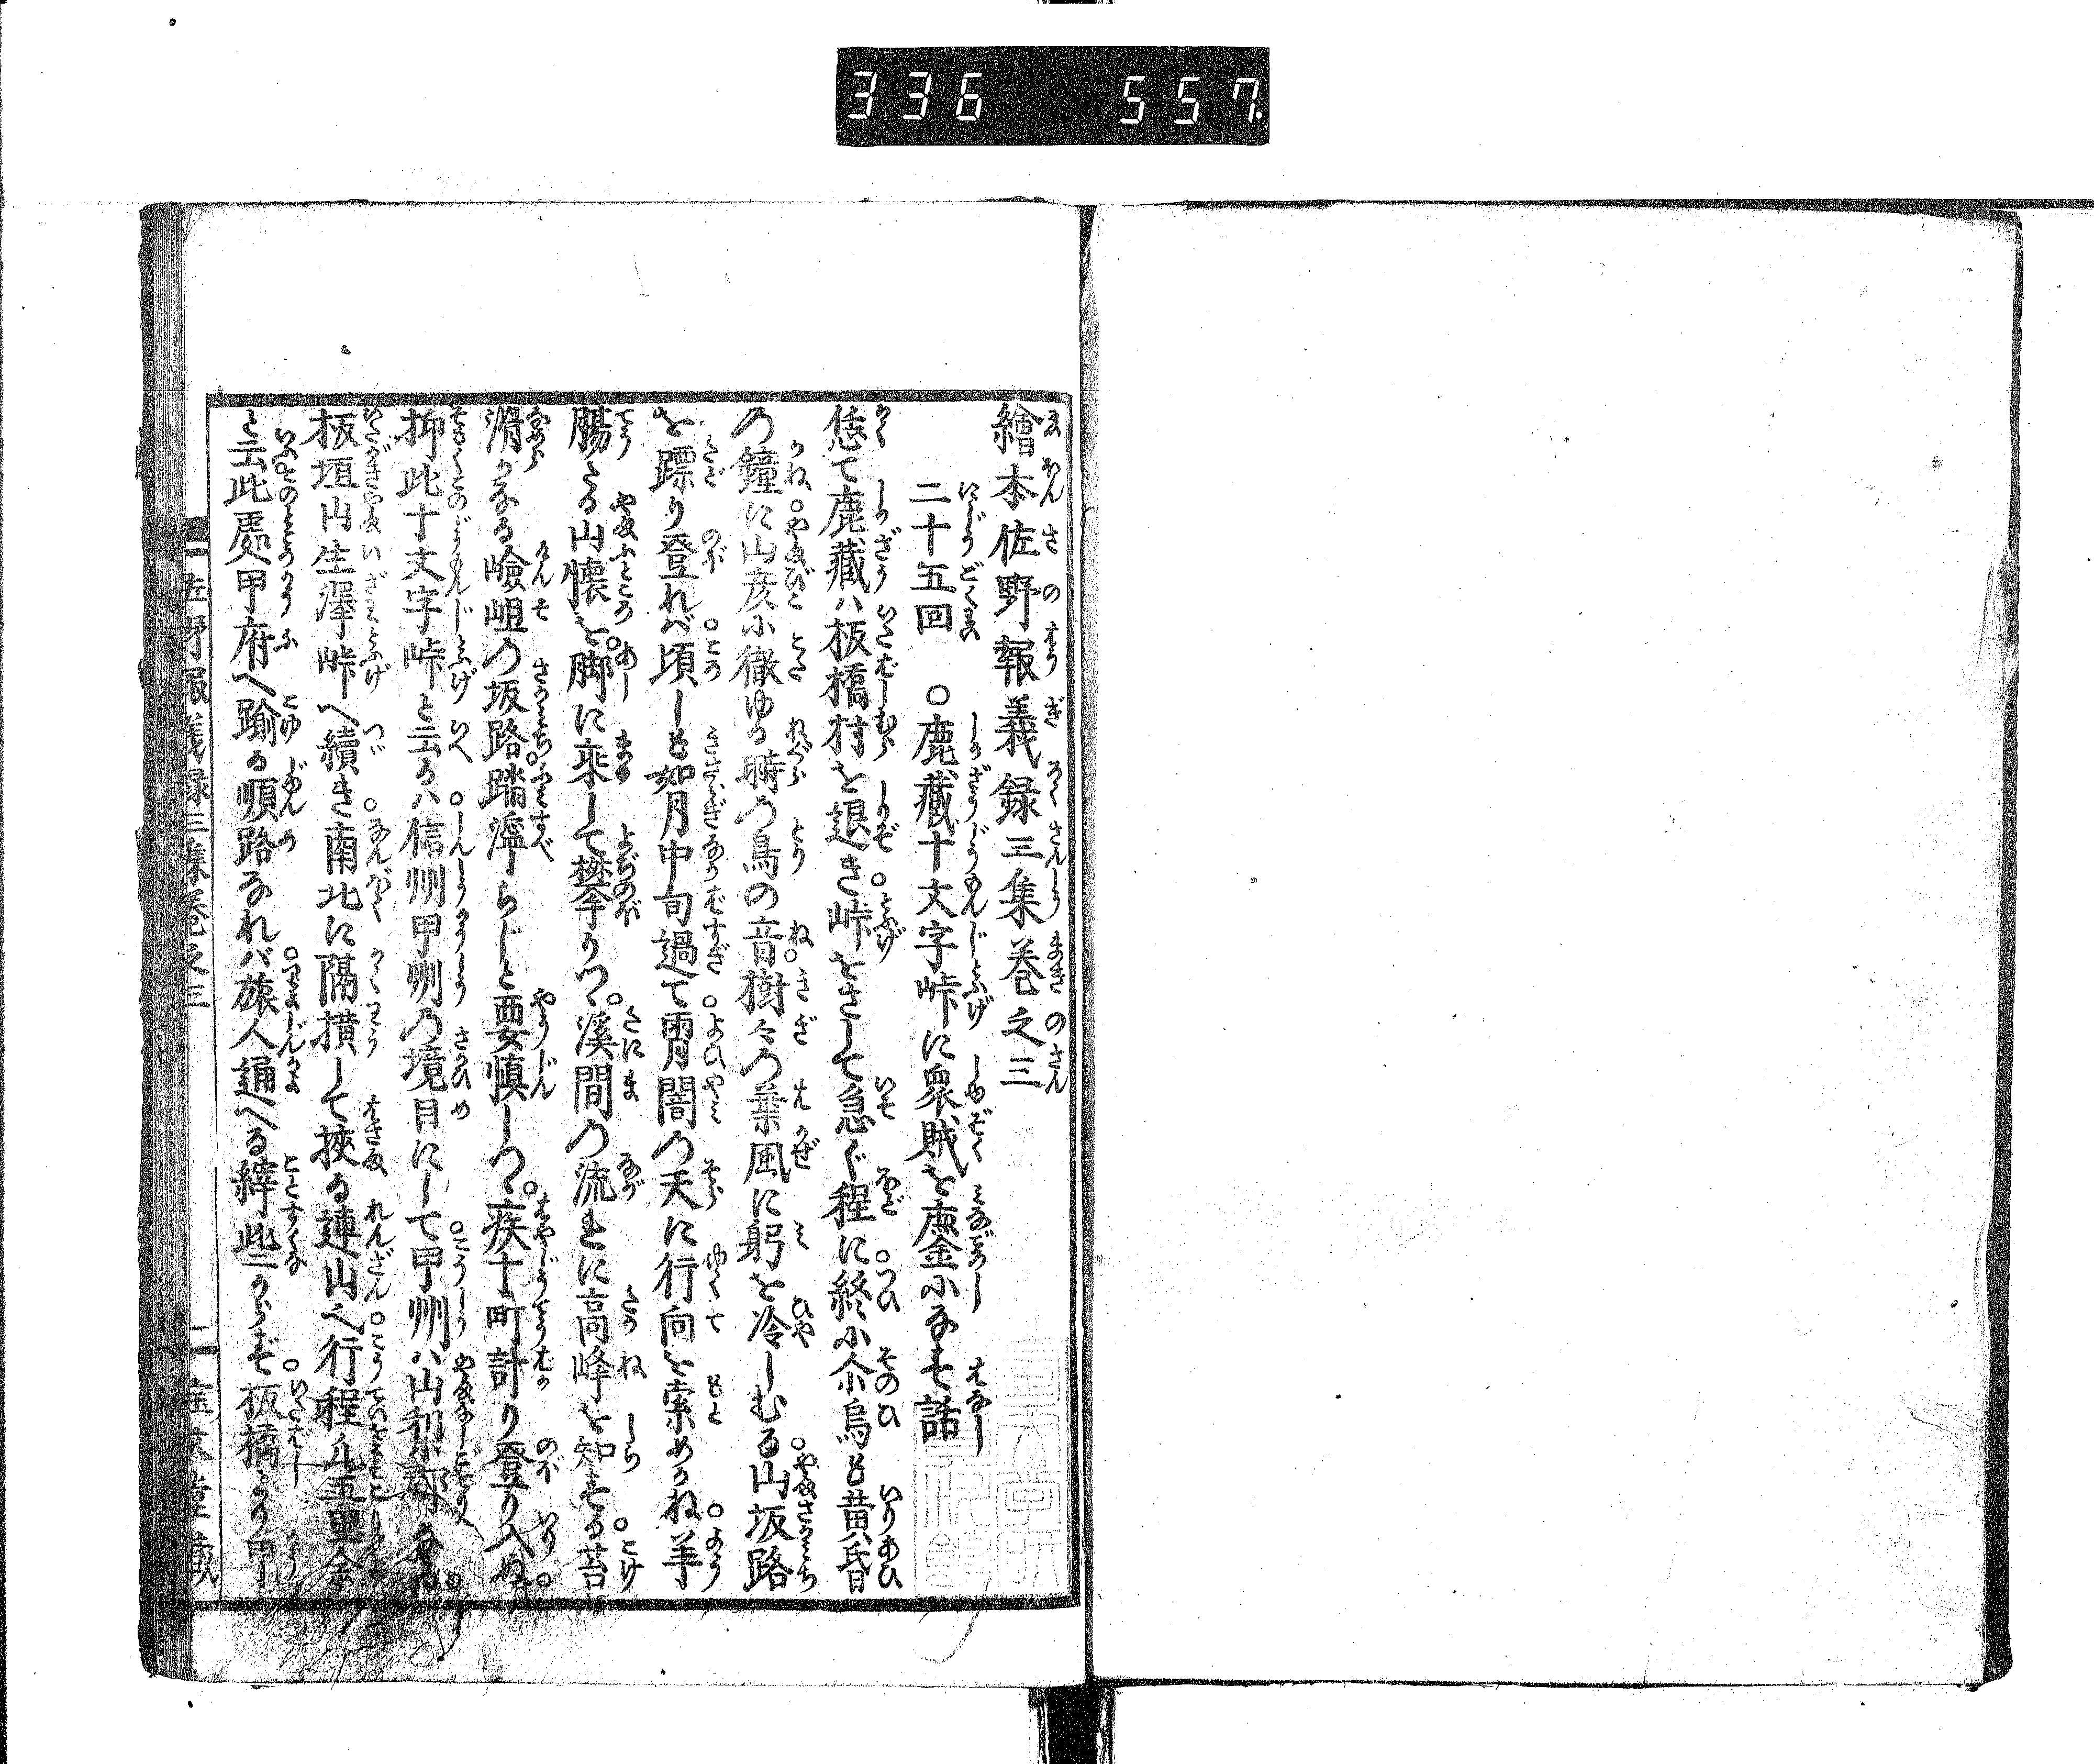 336 557.
繪本佐野報義録三集巻之三
二十五回 ○鹿藏十文字峠に衆賊を鏖にな𛁏話
恁て鹿藏ハ板橋村を退き峠をさして急ぐ程に終に尒烏も黄昏
の鐘に山彦に徹ゆる時の鳥の音樹々の葉風に躬を冷しむる山坂路
を蹽り登れば頃しも如月中旬過て宵闇の天に行向を索めかね羊
腸たる山懐を脚に乗して攀りつゝ渓間の流れに高峰を知する苔
滑かなる嶮岨の坂路踏濘らじと要慎しつゝ疾十町計り登り入ぬ
抑此十文字峠と云るハ信州甲州の境目にして甲州ハ山梨郡なる
板垣山生澤峠へ續き南北に隔横して挾る連山之行程凢五里余
と云此處甲府へ踰る順路なれバ旅人通へる繂些からず板橋より甲
佐野報義録三集巻之三 一